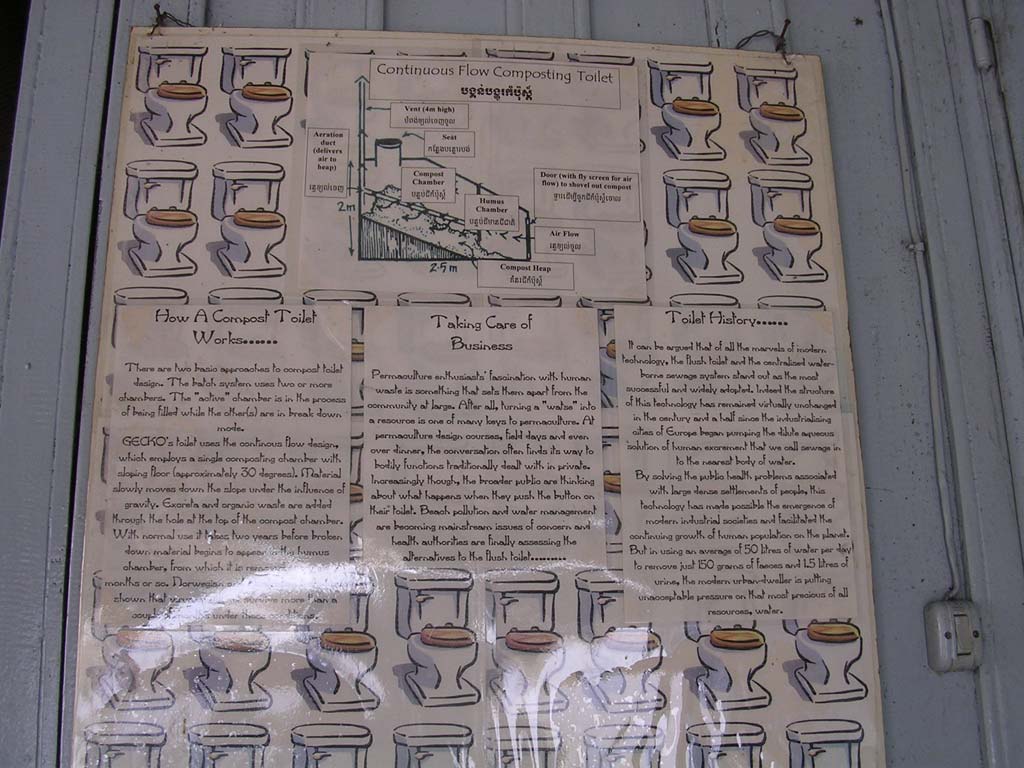 Continuous Flow Composting Toilet
បង្គន់បង្ហូរកំប៉ុស្ត៍
Vent (4m high)
បំពង់ខ្យល់ចេញចូល
Seat
កន្លែងបត្ថោរបង់
Aeration
duct (delivers
air to
heap)
Compost
Chamber
បន្ទប់ជីកំប៉ុស្ត៍
Humus
Chamber
Door (with fly screen for air
flow) to shovel out compost
Air Flow
Compost Heap
គំនរជីកំប៉ុស្ត៍
2m
2.5 m
How A Compost Toilet
Works......
There are two basic approaches to compost toilet
design. The batch system uses two or more
chambers. The "active" chamber is in the process
of being filled while the other(s) are in break down
mode.
GECKO's toilet uses the continous flow design,
which employs a single composting chamber with
sloping floor (approximately 30 degrees). Material
slowly moves down the slope under the influence of
gravity. Excreta and organic waste are added
through the hole at the top of the compost chamber.
With normal use it takes two years before broken
down material begins to appear in the humus
chamber, from which it is
months or so. Norwegian
shown that survive more than a
under these conditions.
Taking Care of
Business
Permaculture enthusiasts' fascination with human
waste is something that sets them apart from the
community at large. After all, turning a "watse" into
a resource is one of many keys to permaculture. At
permaculture design courses, field days and even
over dinner, the conversation often finds its way to
bodily functions traditionally dealt with in private.
Increasingly though, the broader public are thinking
about what happens when they push the button on
their toilet. Beach pollution and water management
are becoming mainstream issues of concern and
health authorities are finally assessing the
alternatives to the flush toilet.........
Toilet History......
It can be argued that of all the marvels of modern
technology, the flush toilet and the centralised water-
borne sewage system stand out as the most
successful and widely adopted. Indeed the structure
of this technology has remained virtually unchanged
in the century and a half since the industrialising
cities of Europe began pumping the dilute aqueous
solution of human excrement that we call sewage in
to the nearest body of water.
By solving the public health problems associated
with large dense settlements of people, this
technology has made possible the emergence of
modern industrial societies and facilitated the
continuing growth of human population on the planet.
But in using an average of 50 litres of water per day
to remove just 150 grams of faeces and 1.5 litres of
urine, the modern urban-dweller is putting
unacceptable pressure on that most precious of all
resources, water.